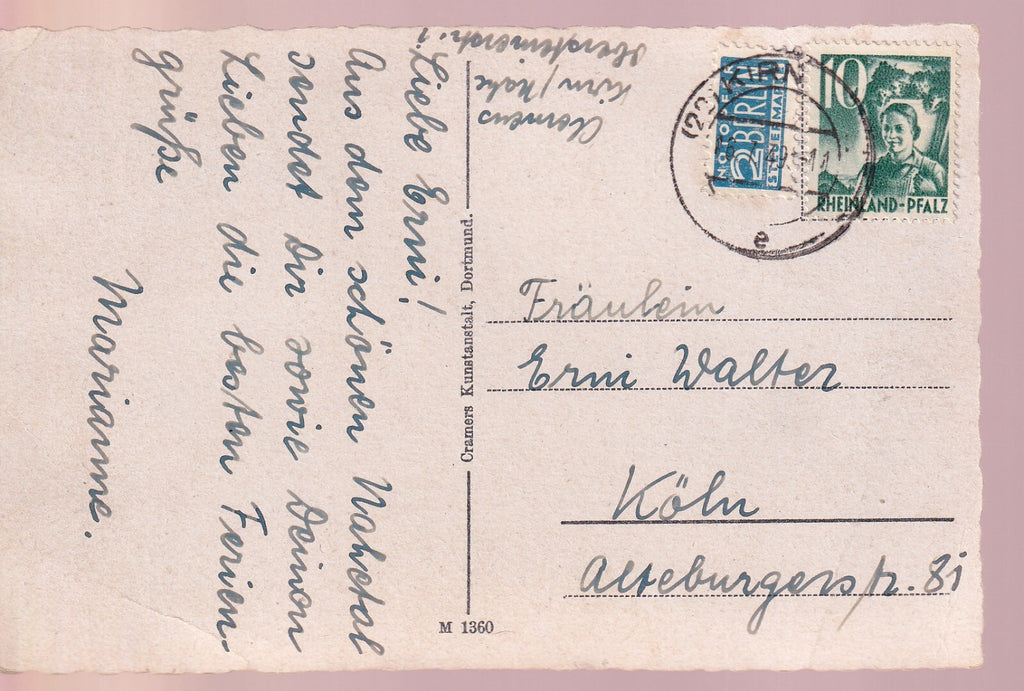 Liebe Erni!
Aus dem schönen Nahetal
sendet Dir sowie Deinen
Lieben die besten Ferien-
grüße
Marianne.
Clemens
Kirn/Nahe
Cramers Kunstanstalt, Dortmund.
M 1360
(22) KIRN
e
2 BERLIN
STEUERMARKE
10
RHEINLAND-PFALZ
Fräulein
Erni Walter
Köln
Alteburgerstr. 81